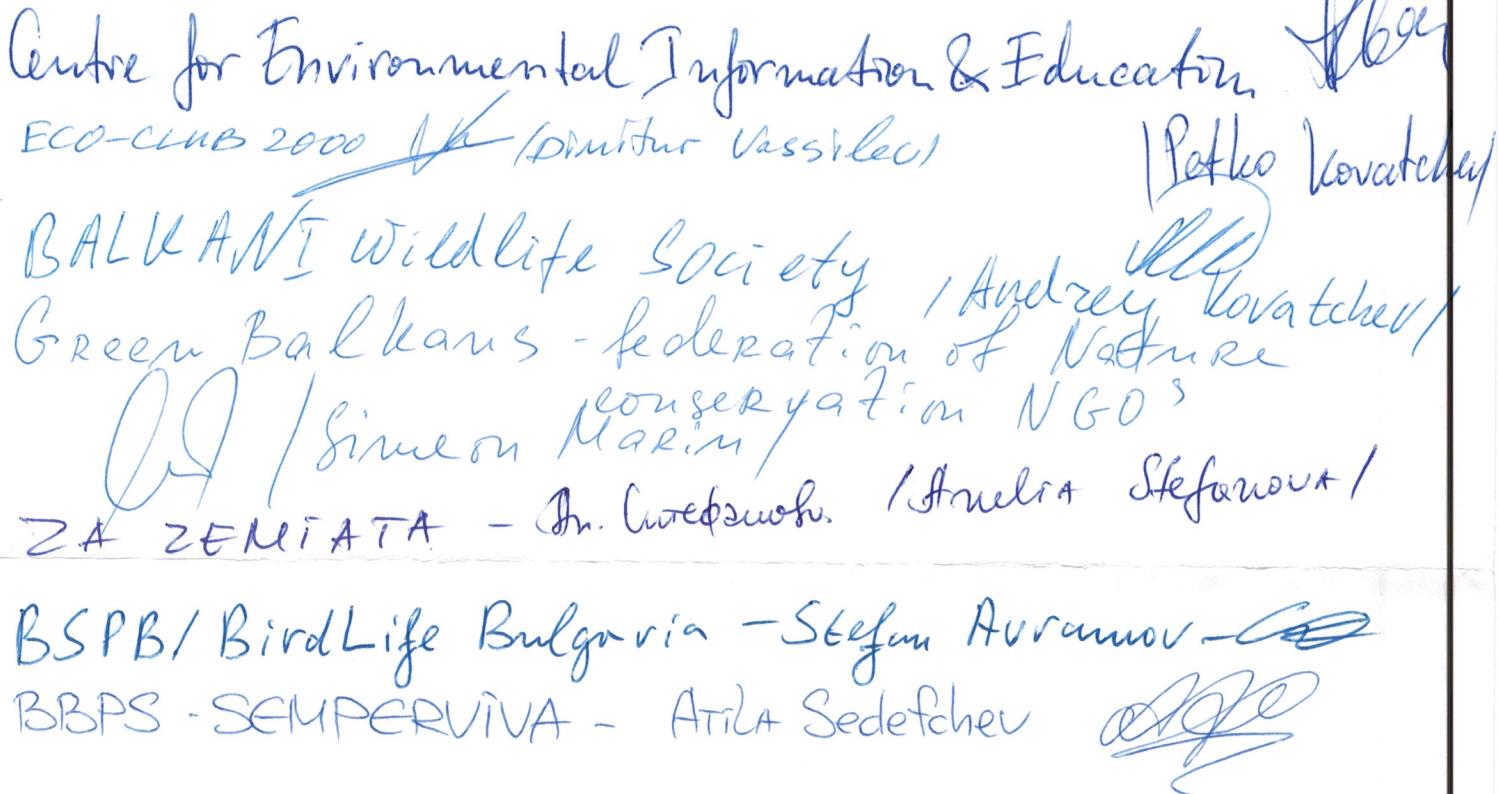 Centre for Environmental Information & Education
/Petko Kovatchev/
ECO-CLUB 2000 /Dimitur Vassilev/
BALKANI Wildlife Society /Andrey Kovatchev/
Green Balkans - federation of Nature
conservation NGOs
/Simeon Marin/
ZA ZEMIATA - Ан. Стефанова. /Anelia Stefanova/
BSPB/BirdLife Bulgaria - Stefan Avramov -
BBPS - SEMPERVIVA - Atila Sedefchev